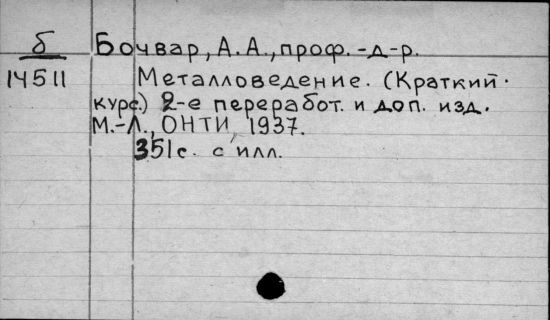 б Бочвар, А. А., проф. -д-р.
14511 Металловедение. (Краткий
курс.) 2-е переработ. и доп. изд.
М.-Л., ОНТИ, 1937.
351 с. с илл.